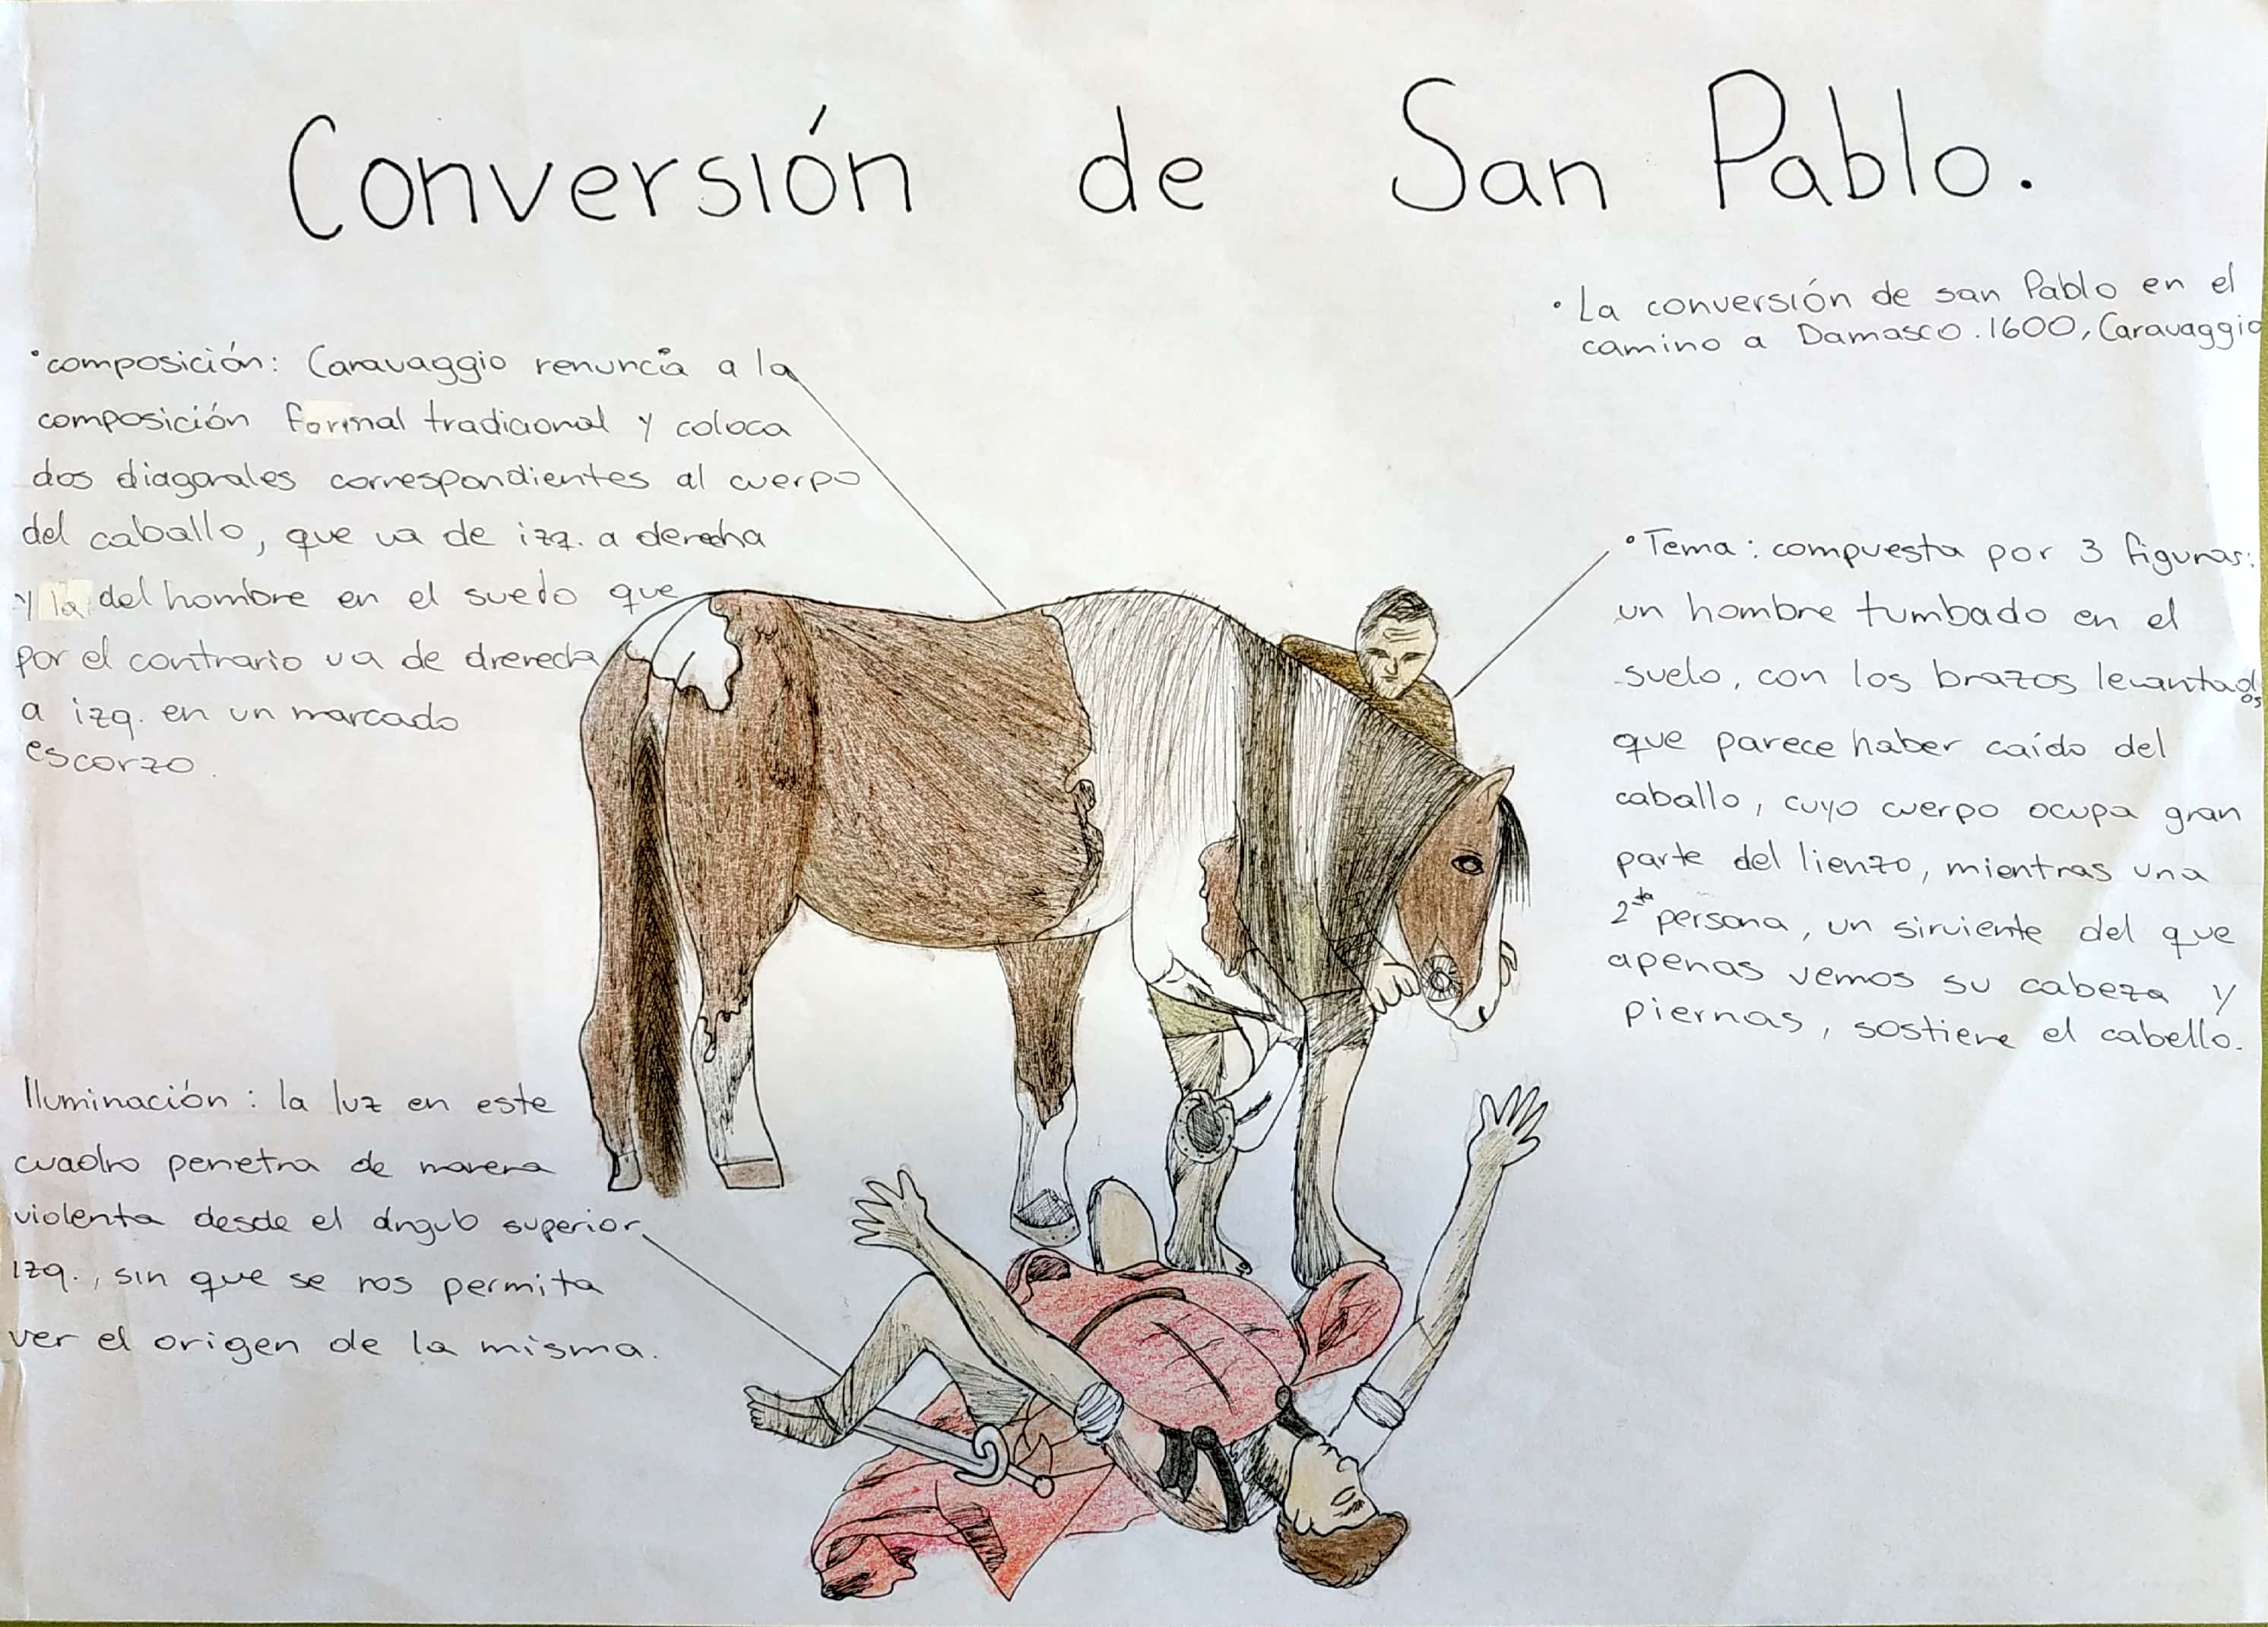 Conversión de San Pablo.
• La conversión de san Pablo en el
camino a Damasco. 1600, Caravaggio
• composición: Caravaggio renuncia a la
composición formal tradicional y coloca
dos diagonales correspondientes al cuerpo
del caballo, que va de izq. a derecha
y la del hombre en el suelo que
por el contrario va de drerecha
a izq. en un marcado
escorzo.
• Tema: compuesta por 3 figuras:
un hombre tumbado en el
suelo, con los brazos levantados
que parece haber caído del
caballo, cuyo cuerpo ocupa gran
parte del lienzo, mientras una
2ª persona, un sirviente del que
apenas vemos su cabeza y
piernas, sostiene el cabello.
Iluminación: la luz en este
cuadro penetra de manera
violenta desde el ángulo superior
izq., sin que se nos permita
ver el origen de la misma.